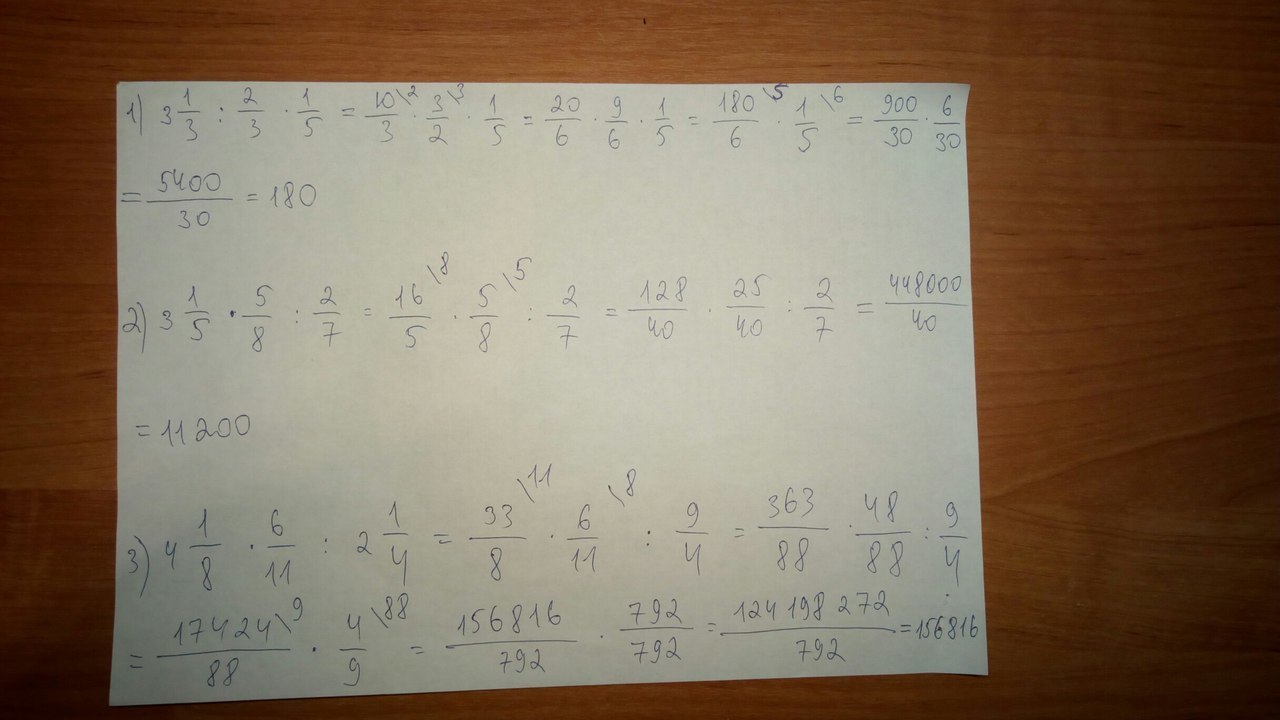 1) 3 1/3 : 2/3 · 1/5 = 10/3 \2 · 3/2 \3 · 1/5 = 20/6 · 9/6 · 1/5 = 180/6 \5 · 1/5 \6 = 900/30 · 6/30
= 5400/30 = 180
2) 3 1/5 · 5/8 : 2/7 = 16/5 \8 · 5/8 \5 : 2/7 = 128/40 · 25/40 : 2/7 = 448000/40
= 11200
3) 4 1/8 · 6/11 : 2 1/4 = 33/8 \11 · 6/11 \8 : 9/4 = 363/88 · 48/88 : 9/4
= 17424/88 \9 · 4/9 \88 = 156816/792 · 792/792 = 124198272/792 = 156816